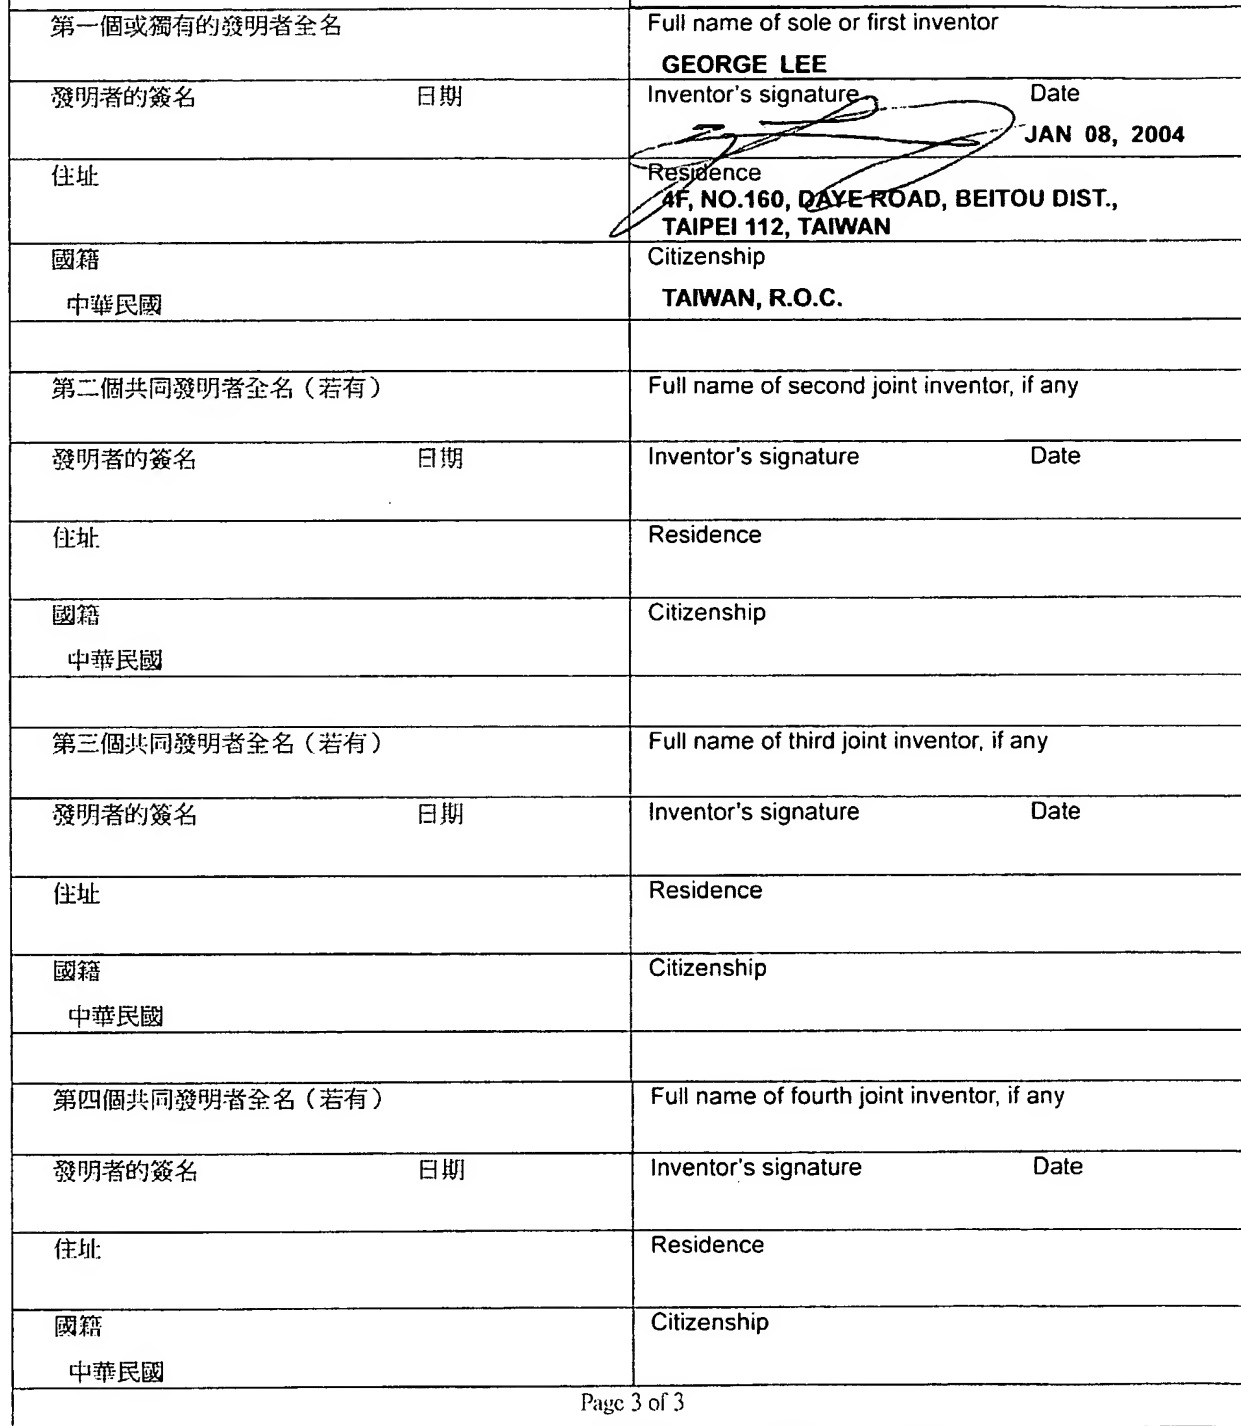 第一個或獨有的發明者全名
Full name of sole or first inventor
GEORGE LEE
發明者的簽名 日期
Inventor's signature Date
JAN 08, 2004
住址
Residence
4F, NO.160, DAYE ROAD, BEITOU DIST.,
TAIPEI 112, TAIWAN
國籍
Citizenship
中華民國
TAIWAN, R.O.C.
第二個共同發明者全名（若有）
Full name of second joint inventor, if any
發明者的簽名 日期
Inventor's signature Date
住址
Residence
國籍
Citizenship
中華民國
第三個共同發明者全名（若有）
Full name of third joint inventor, if any
發明者的簽名 日期
Inventor's signature Date
住址
Residence
國籍
Citizenship
中華民國
第四個共同發明者全名（若有）
Full name of fourth joint inventor, if any
發明者的簽名 日期
Inventor's signature Date
住址
Residence
國籍
Citizenship
中華民國
Page 3 of 3